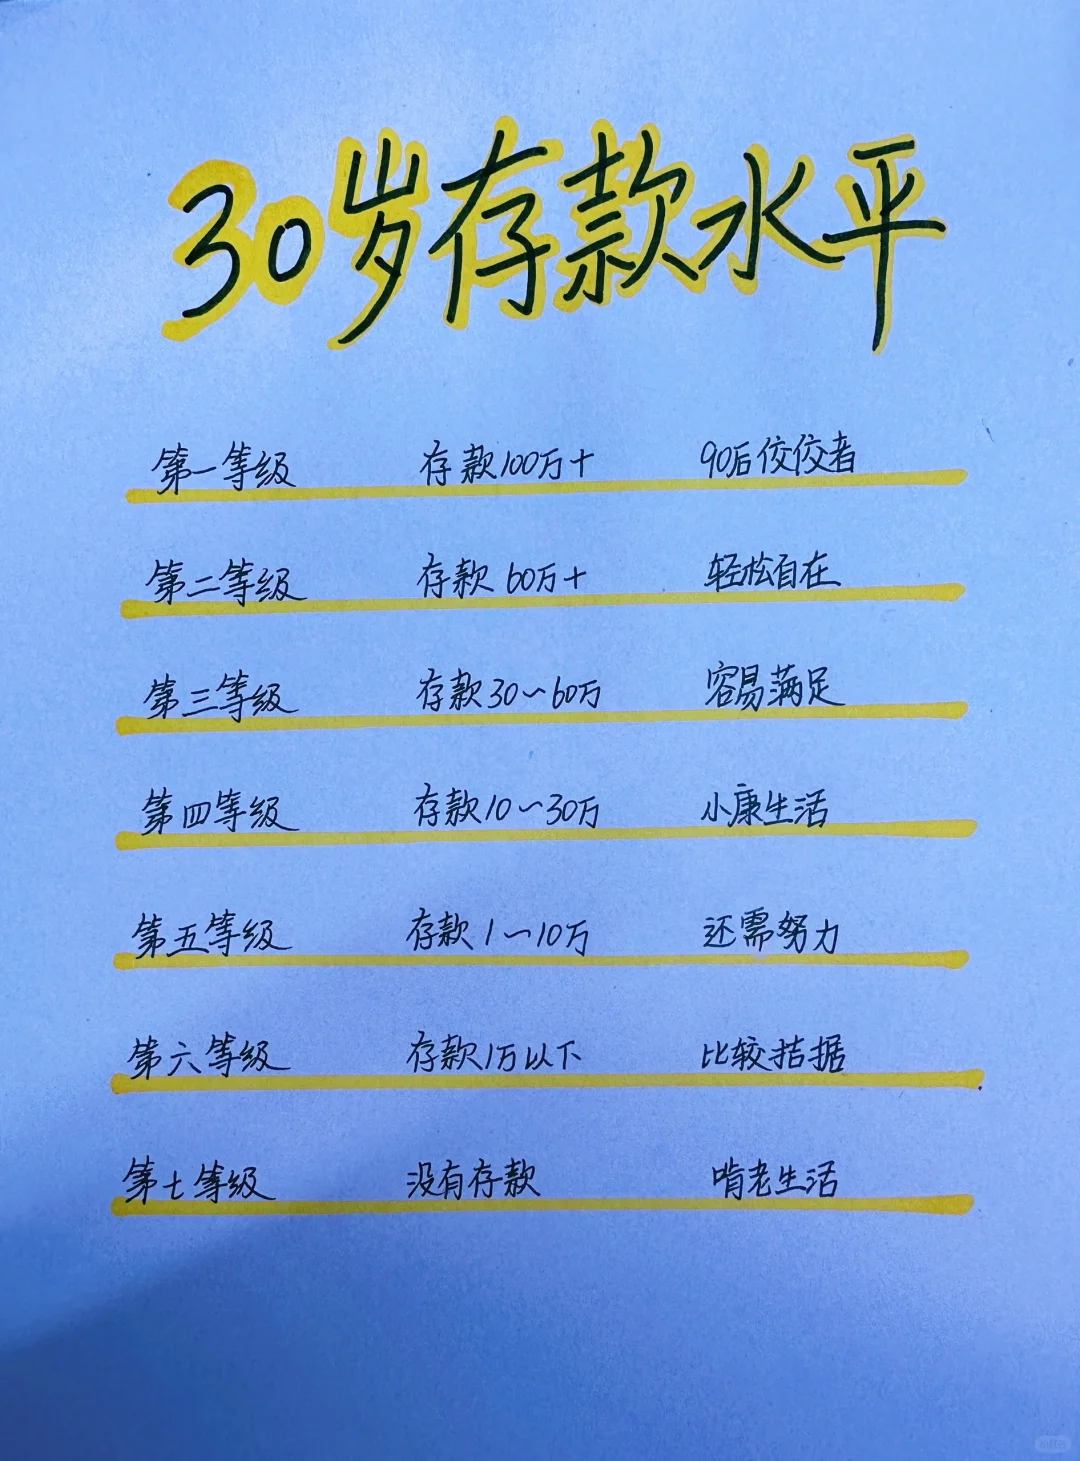 30岁存款水平
第一等级 存款100万+ 90后佼佼者
第二等级 存款60万+ 轻松自在
第三等级 存款30~60万 容易满足
第四等级 存款10~30万 小康生活
第五等级 存款1~10万 还需努力
第六等级 存款1万以下 比较拮据
第七等级 没有存款 啃老生活